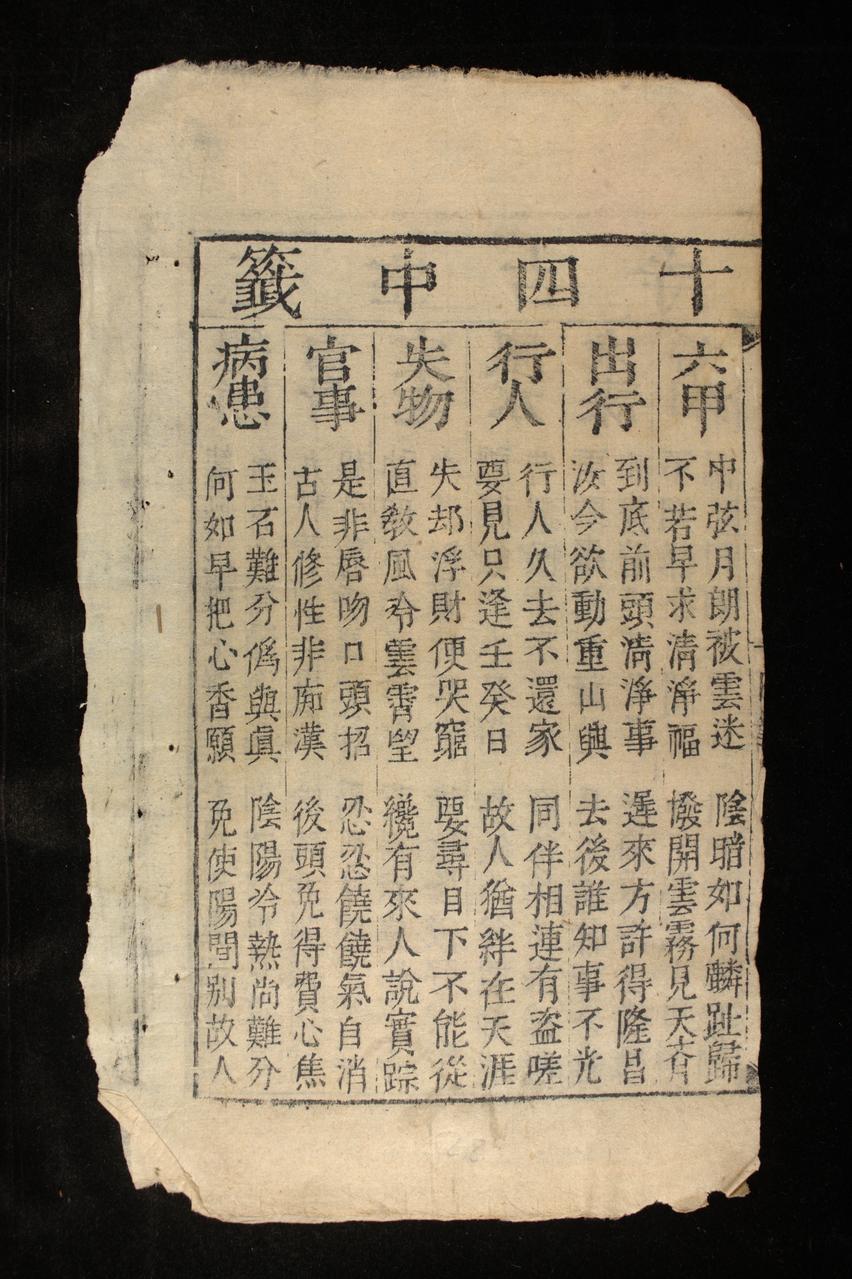 十四中籤
六甲
中弦月朗被雲迷 陰暗如何麟趾歸
不若早求清淨福 撥開雲霧見天春
出行
到底前頭清淨事 遲來方許得隆昌
汝今欲動重山興 去後誰知事不光
行人
行人久去不還家 同伴相連有盗嗟
要見只逢壬癸日 故人猶絆在天涯
失物
失却浮財便哭窮 要尋目下不能從
直教風令雲霄望 纔有來人說實踪
官事
是非唇吻口頭招 忍忍饒饒氣自消
古人修性非痴漢 後頭免得費心焦
病患
玉石難分僞與眞 陰陽冷熱尚難分
何如早把心香願 免使陽間別故人